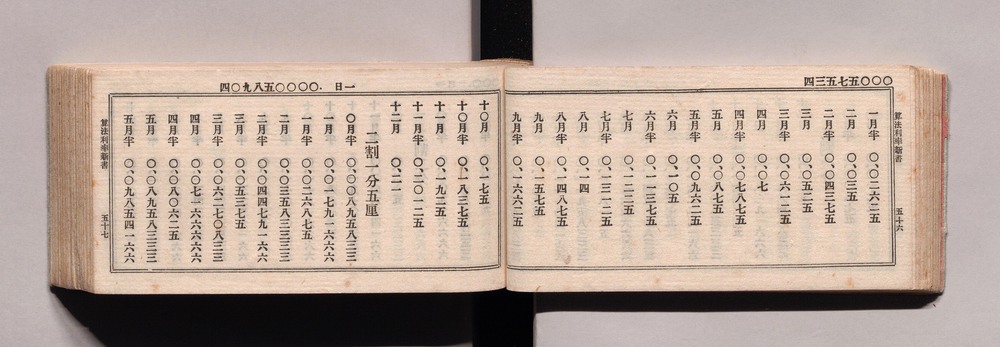 〇〇〇五七五三四
一月半 〇、〇二六二五
二月 〇、〇三五
二月半 〇、〇四三七五
三月 〇、〇五二五
三月半 〇、〇六一二五
四月 〇、〇七
四月半 〇、〇七八七五
五月 〇、〇八七五
五月半 〇、〇九六二五
六月 〇、一〇五
六月半 〇、一一三七五
七月 〇、一二二五
七月半 〇、一三一二五
八月 〇、一四
八月半 〇、一四八七五
九月 〇、一五七五
九月半 〇、一六六二五
算法利率新書 五十六
一日.〇〇〇〇五八九〇四
十〇月 〇、一七五
十〇月半 〇、一八三七五
十一月 〇、一九二五
十一月半 〇、二〇一二五
十二月 〇、二一
二割一分五厘
〇月半 〇、〇〇八九五八三三
一月 〇、〇一七九一六六六
一月半 〇、〇二六八七五
二月 〇、〇三五八三三三三
二月半 〇、〇四四七九一六六
三月 〇、〇五三七五
三月半 〇、〇六二七〇八三三
四月 〇、〇七一六六六六六
四月半 〇、〇八〇六二五
五月 〇、〇八九五八三三三
五月半 〇、〇九八五四一六六
算法利率新書 五十七